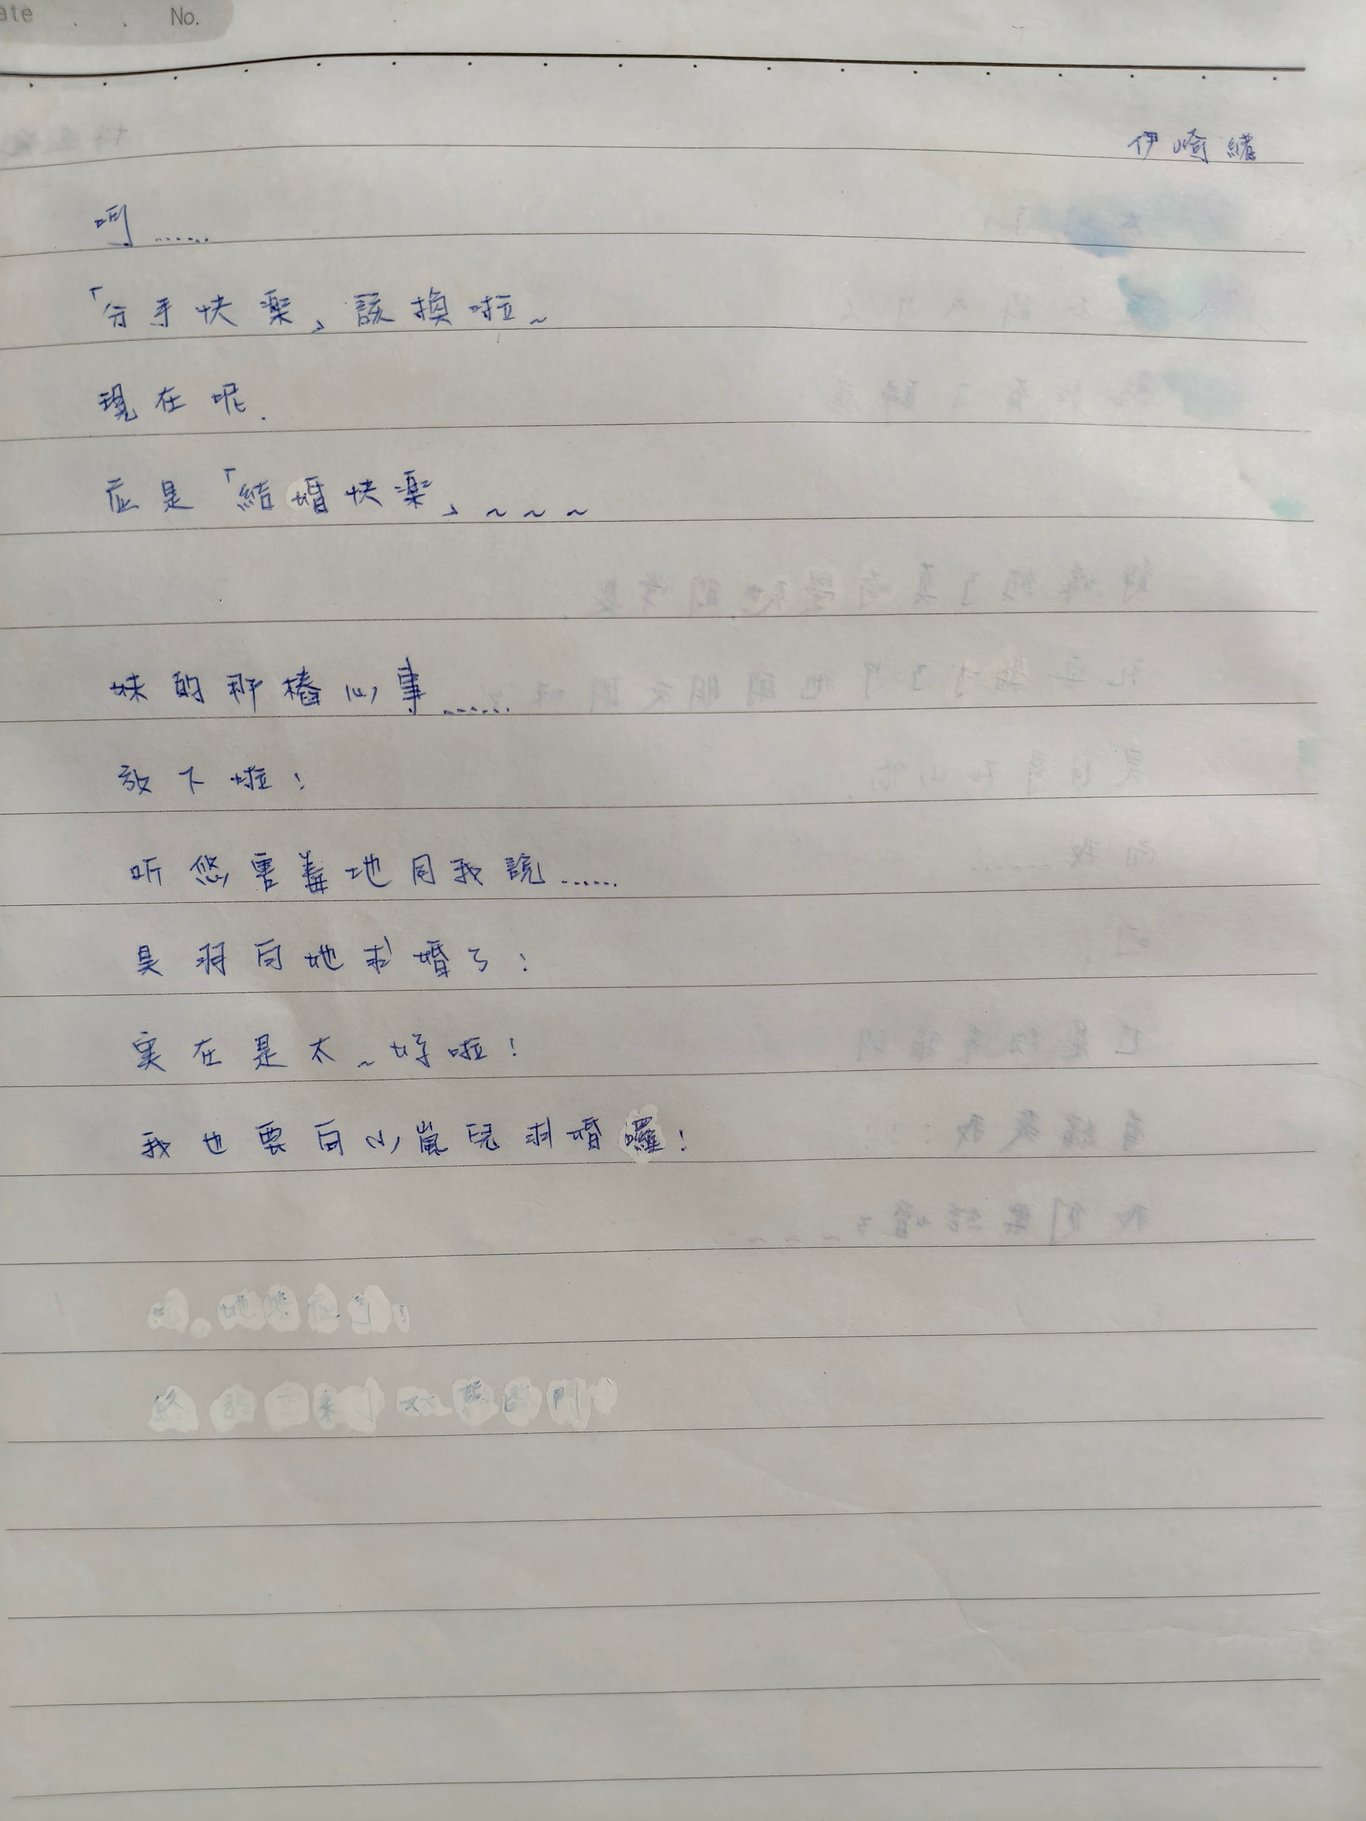 ate . . No.
伊崎緒
呵……
「分手快楽」該換啦~
現在呢.
应是「結婚快楽」~~~
妹的那樁心事……
放下啦!
听您害羞地同我說……
昊羽向她求婚了!
実在是太~好啦!
我也要向小嵐兒求婚囉!